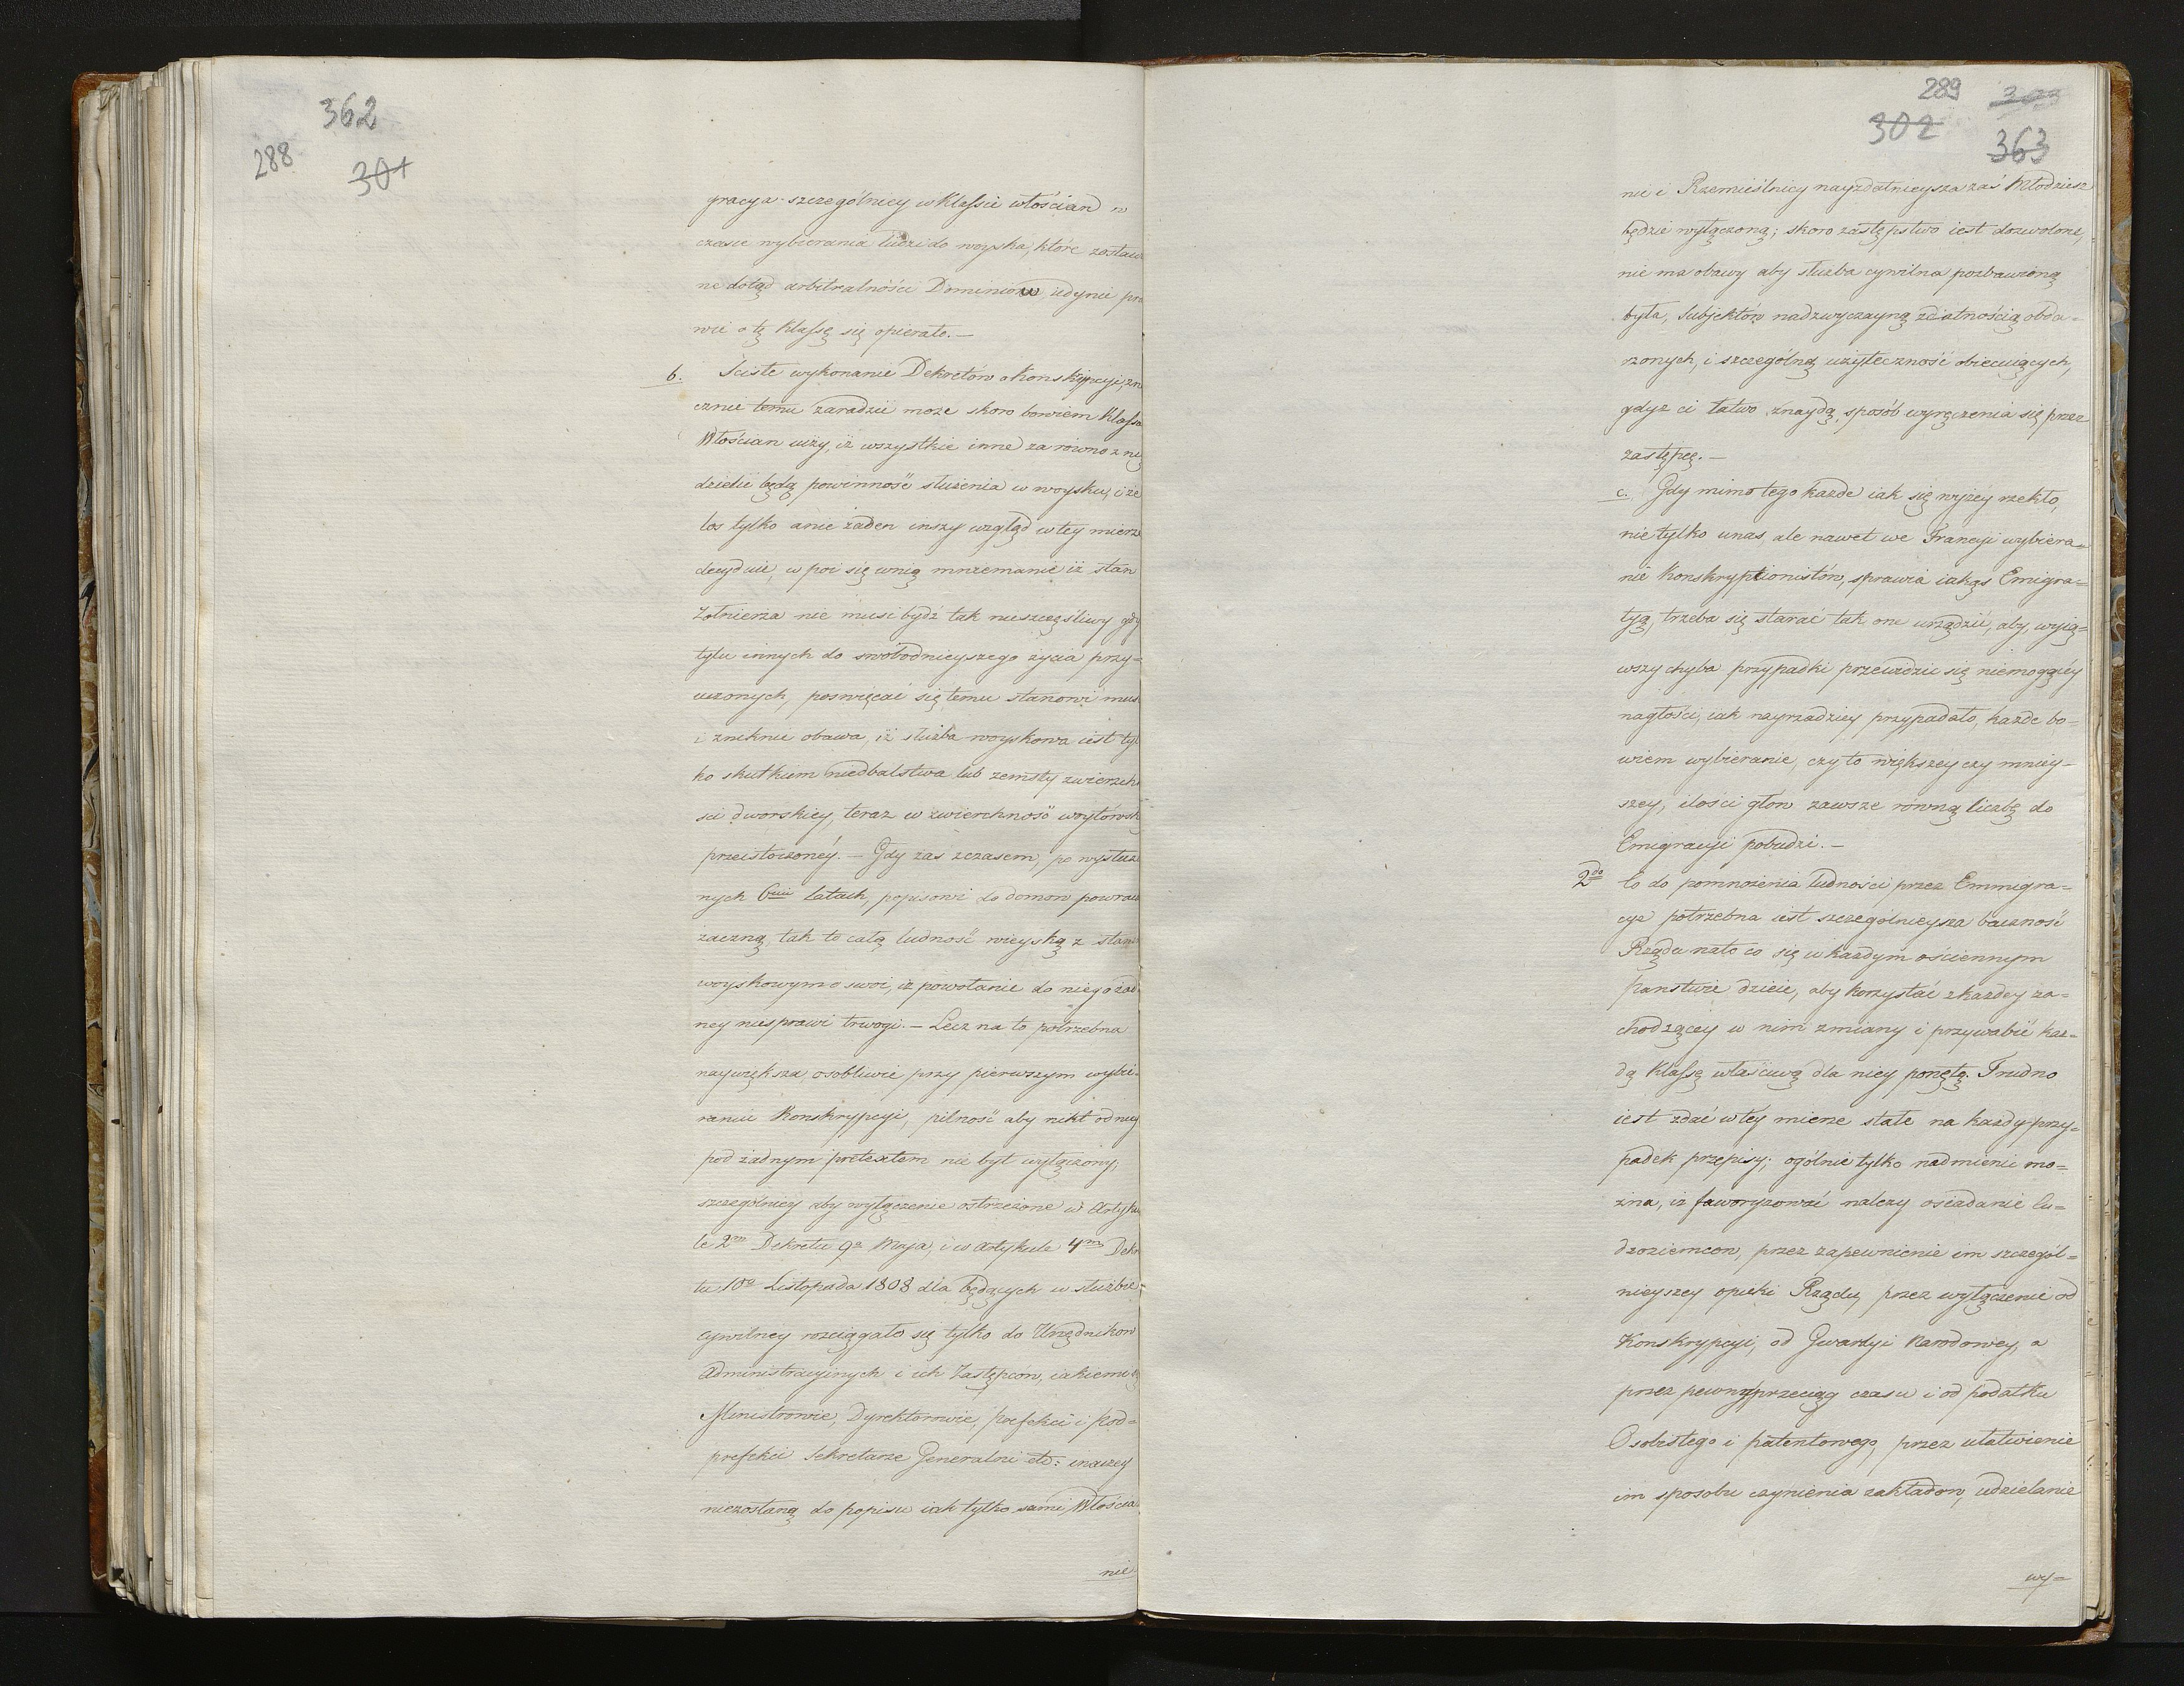 362
288
301
gracya szczególniey w Klassie włościan w
czasie wybierania ludzi do woyska, które zostaw
ne dotąd arbitralności Dominiów, iedynie pra
wie o tę Klassę się opierało.—
b. Ściśłe wykonanie Dekretów o Konskrypcyi, zna
cznie temu zaradzić może skoro bowiem Klassa
Włościan uyży, iż wszystkie inne za równo z nią
dzielić będą powinność służenia w woysku, i że
los tylko a nie żaden inszy wzgląd w tey mierze
decyduie, w poi się w nią mniemanie iż stan
Żołnierza nie musi bydź tak nieszczęśliwy gdy
tylu innych do swobodnieyszego życia przy=
uczonych, poswięcać się temu stanowi musi
i zniknie obawa, iż służba woyskowa iest tyl
ko skutkiem niedbalstwa lub zemsty zwierzchno
ści dworskiey, teraz w zwierchność woytowską
przeistoczoney.— Gdy zas z czasem, po wysłużo
nych 6ciu latach, popisowi do domow powracać
zaczną, tak to całą ludność wieyską z stanem
woyskowym oswoi, iż powołanie do niego żad
ney niesprawi trwogi.— Lecz na to potrzebna
naywiększa, osobliwie przy pierwszym wybie=
raniu Konskrypcyi, pilność aby nikt od niey
pod żadnym pretextem nie był wyłączony,
szczególniey aby wyłączenie ostrzeżone w Artyku
le 2m Dekretu 9o Maja, i w Artykule 4m Dekre
tu 10o Listopada 1808 dla będących w służbie
cywilney rozciągało się tylko do Urzędnikow
Administracyinych i ich Zastępcow, iakiemi są
Ministrowie, Dyrektorowie, prefekci i pod=
prefekci Sekretarze Generalni etc: inaczey
niezostaną do popisu iak tylko sami Włościa
nie
289
302
363
nie i Rzemieślnicy nayzdatnieysza zaś Młodziesz
będzie wyłączoną; skoro zastępstwo iest dozwolone,
nie ma obawy aby służba cywilna pozbawioną
była, Subjektow nadzwyczayną zdatnością obda=
rzonych, i szczególną użyteczność obiecuiących,
gdyż ci łatwo znaydą, sposób wyręczenia się przez
zastępcę.—
c. Gdy mimo tego każde iak się wyżey rzekło,
nie tylko u nas, ale nawet we Francyi wybiera=
nie Konskrypcionistów, sprawia iakąs Emigra=
tyą, trzeba się starać tak one urządzić, aby, wyią=
wszy chyba przypadki przewidzieć się niemogącéy
nagłości, iak nayrzadziey przypadało, każde bo=
wiem wybieranie, czy to większey czy mniey=
szey, ilości głow zawsze równą liczbę do
Emigracyi pobudzi.—
2do Co do pomnożenia ludności przez Emmigra=
cye potrzebna iest szczególnieysza baczność
Rządu na to co się w każdym ościennym
państwie dzieie, aby korzystać z każdey za=
chodzącey w nim zmiany i przywabić każ=
dą Klassę właściwą dla niey ponętą. Trudno
iest zdać w tey mierze stałe na każdy przy=
padek przepisy; ogólnie tylko nadmienić mo=
żna, iż faworyzować należy osiadanie Cu=
dzoziemcow, przez zapewnienie im szczegól=
nieyszey opieki Rządu, przez wyłączenie od
Konskrypcyi, od Gwardyi Narodowey, a
przez pewny przeciąg czasu i od podatku
Osobistego i patentowego, przez ułatwienie
im sposobu czynienia zakładow, udzielanie
wy=